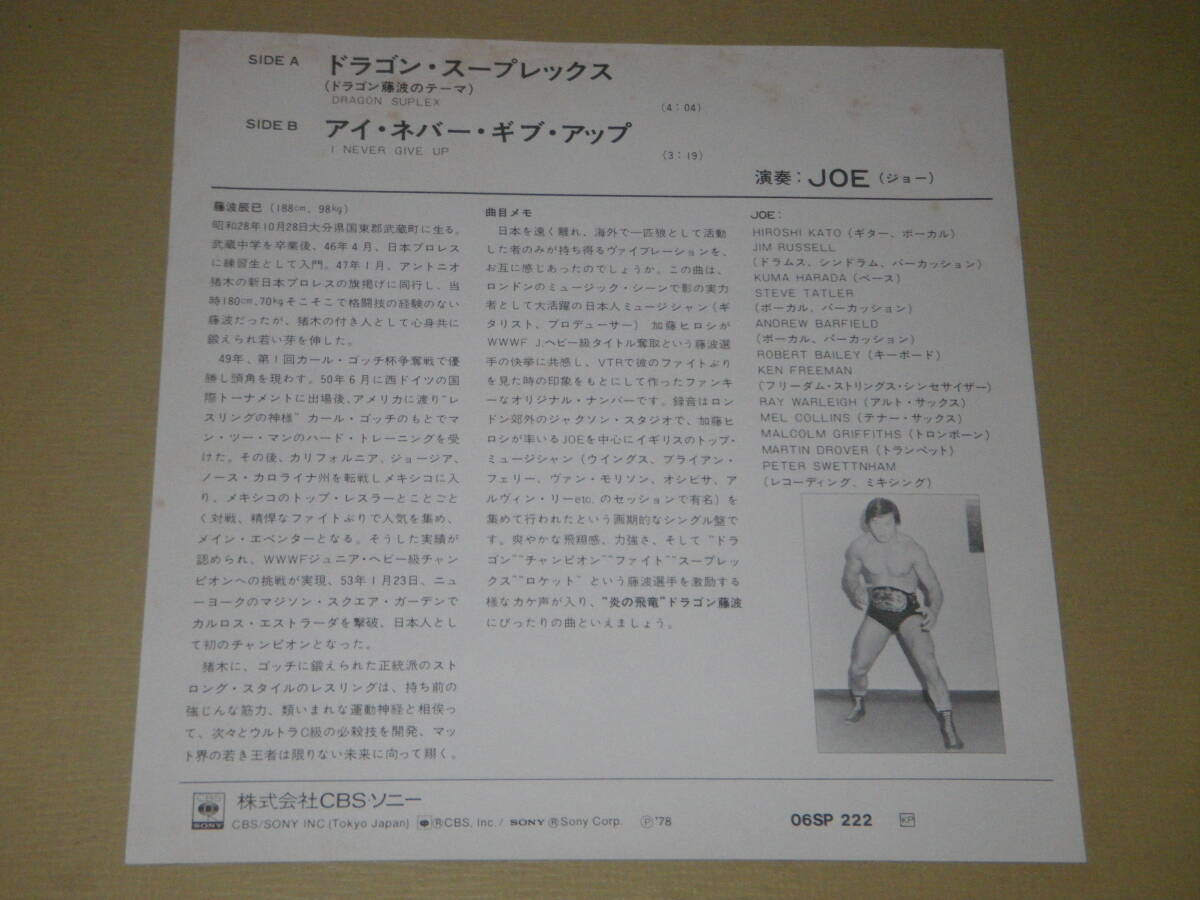 SIDE A ドラゴン・スープレックス
(ドラゴン藤波のテーマ)
DRAGON SUPLEX
(4:04)
SIDE B アイ・ネバー・ギブ・アップ
I NEVER GIVE UP
(3:19)
演奏：JOE (ジョー)
藤波辰巳 (188cm、98kg)
昭和28年10月28日大分県国東郡武蔵町に生る。
武蔵中学を卒業後、46年4月、日本プロレス
に練習生として入門。47年1月、アントニオ
猪木の新日本プロレスの旗揚げに同行し、当
時180cm、70kgそこそこで格闘技の経験のない
藤波だったが、猪木の付き人として心身共に
鍛えられ若い芽を伸した。
49年、第1回カール・ゴッチ杯争奪戦で優
勝し頭角を現わす。50年6月に西ドイツの国
際トーナメントに出場後、アメリカに渡り"レ
スリングの神様" カール・ゴッチのもとでマ
ン・ツー・マンのハード・トレーニングを受
けた。その後、カリフォルニア、ジョージア、
ノース・カロライナ州を転戦しメキシコに入
り、メキシコのトップ・レスラーとことごと
く対戦、精悍なファイトぶりで人気を集め、
メイン・エベンターとなる。そうした実績が
認められ、WWWFジュニア・ヘビー級チャン
ピオンへの挑戦が実現、53年1月23日、ニュ
ーヨークのマジソン・スクエア・ガーデンで
カルロス・エストラーダを撃破、日本人とし
て初のチャンピオンとなった。
猪木に、ゴッチに鍛えられた正統派のスト
ロング・スタイルのレスリングは、持ち前の
強じんな筋力、類いまれな運動神経と相俟っ
て、次々とウルトラC級の必殺技を開発、マッ
ト界の若き王者は限りない未来に向って翔く。
曲目メモ
日本を遠く離れ、海外で一匹狼として活動
した者のみが持ち得るヴァイブレーションを、
お互に感じあったのでしょうか。この曲は、
ロンドンのミュージック・シーンで影の実力
者として大活躍の日本人ミュージシャン(ギ
タリスト、プロデューサー) 加藤ヒロシが
WWWF J.ヘビー級タイトル奪取という藤波選
手の快挙に共感し、VTRで彼のファイトぶり
を見た時の印象をもとにして作ったファンキ
ーなオリジナル・ナンバーです。録音はロン
ドン郊外のジャクソン・スタジオで、加藤ヒ
ロシが率いるJOEを中心にイギリスのトップ・
ミュージシャン (ウイングス、ブライアン・
フェリー、ヴァン・モリソン、オシビサ、ア
ルヴィン・リーetc.のセッションで有名) を
集めて行われたという画期的なシングル盤で
す。爽やかな飛翔感、力強さ、そして "ドラ
ゴン""チャンピオン""ファイト""スープレッ
クス""ロケット" という藤波選手を激励する
様なカケ声が入り、"炎の飛竜"ドラゴン藤波
にぴったりの曲といえましょう。
JOE:
HIROSHI KATO (ギター、ボーカル)
JIM RUSSELL
(ドラムス、シンドラム、パーカッション)
KUMA HARADA (ベース)
STEVE TATLER
(ボーカル、パーカッション)
ANDREW BARFIELD
(ボーカル、パーカッション)
ROBERT BAILEY (キーボード)
KEN FREEMAN
(フリーダム・ストリングス・シンセサイザー)
RAY WARLEIGH (アルト・サックス)
MEL COLLINS (テナー・サックス)
MALCOLM GRIFFITHS (トロンボーン)
MARTIN DROVER (トランペット)
PETER SWETTNHAM
(レコーディング、ミキシング)
CBS
SONY
株式会社CBS・ソニー
CBS/SONY INC.(Tokyo Japan) ⓇCBS, Inc. / SONY ⓇSony Corp. Ⓟ'78
06SP 222 KP